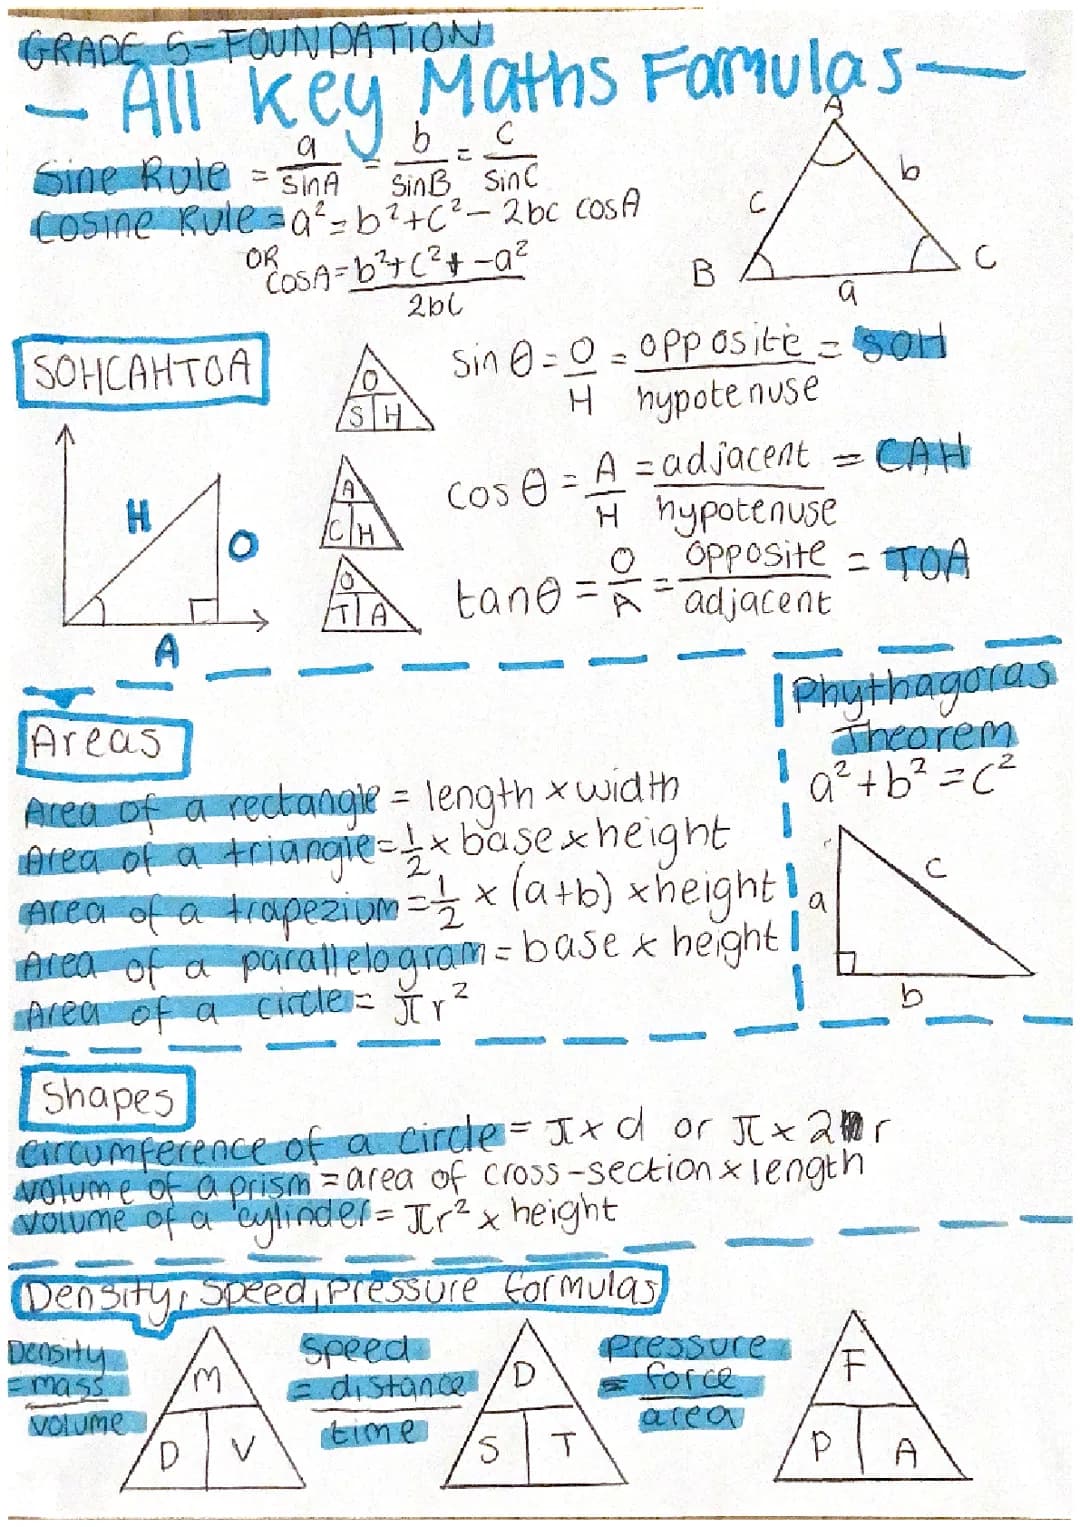 GRADE 5-FOUNDATION
- All Key Maths Formulas -
Sine Rule = a/sinA = b/sinB = c/sinC
Cosine Rule = a² = b² + c² - 2bc cosA
OR cosA = b² + c² + - a² / 2bc
A
b
c
B
C
a
SOHCAHTOA
O
S H
sin θ = O/H = opposite/hypotenuse = SOH
A
C H
cos θ = A/H = adjacent/hypotenuse = CAH
O
T A
tan θ = O/A = opposite/adjacent = TOA
H
O
A
Phythagoras
Theorem
a² + b² = c²
c
a
b
Areas
Area of a rectangle = length x width
Area of a triangle = 1/2 x base x height
Area of a trapezium = 1/2 x (a+b) x height
Area of a parallelogram = base x height
Area of a circle = πr²
Shapes
circumference of a circle = π x d or π x 2 r
volume of a prism = area of cross-section x length
volume of a cylinder = πr² x height
Density, Speed, Pressure formulas
Density
= mass
volume
M
D V
speed
= distance
time
D
S T
pressure
= force
area
F
P A